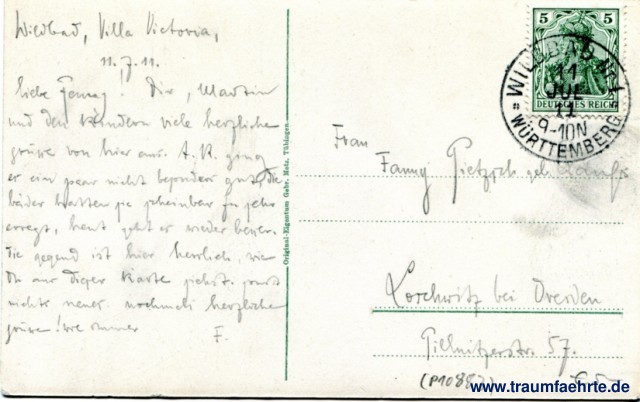 Wildbad, Villa Victoria,
11.7.11.
liebe Fanny! Dir, Martin
und den Kindern viele herzliche
grüße von hier aus. A.R. ging
er ein paar nicht besonders gut, die
bäder hatten sie scheinbar zu sehr
erregt, heut geht es wieder besser.
die gegend ist hier herrlich, wie
Du auf dieser Karte siehst. sonst
nichts neues. nochmals herzliche
grüsse! wie immer
F.
Original-Eigentum Gebr. Metz, Tübingen
5 5
DEUTSCHES REICH
WILDBAD No 1
11
JUL
11
9-10N
WÜRTTEMBERG
Frau
Fanny Pietzsch geb.
Loschwitz bei Dresden
Pillnitzerstr. 57.
(P10887)
www.traumfaehrte.de